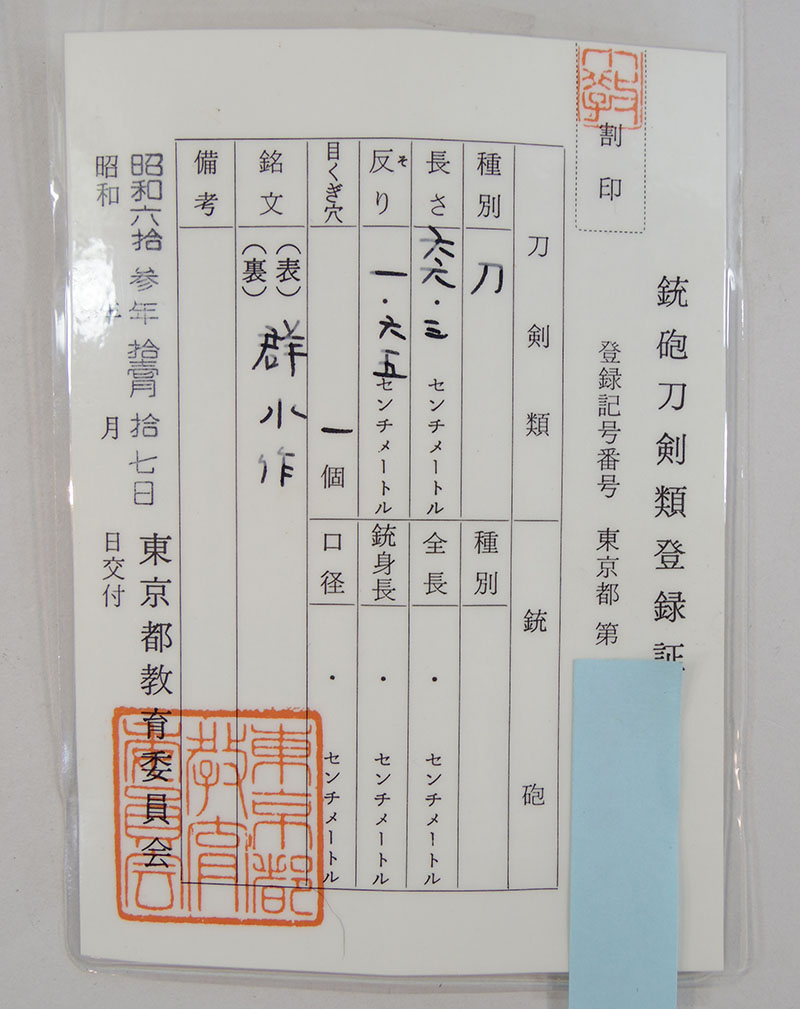 銃砲刀剣類登録証
割印
登録記号番号 東京都 第
刀剣類
種別 刀
長さ 六六・三 センチメートル
反り そ 一・六五 センチメートル
目くぎ穴 一個
銘文 (表) 群水作
(裏)
備考
銃砲
種別
全長 ・ センチメートル
銃身長 ・ センチメートル
口径 ・ センチメートル
昭和六拾参年拾壹月拾七日
昭和 年 月 日交付
東京都教育委員会
東京都
教育
委員会